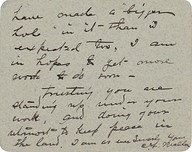 have made a bigger
hole in it than I
expected too, I am
in hopes to get more
work to do soon -
Trusting you are
standing up under your
work, and doing your
utmost to keep peace in
the land, I am as ever Sincerely Yours